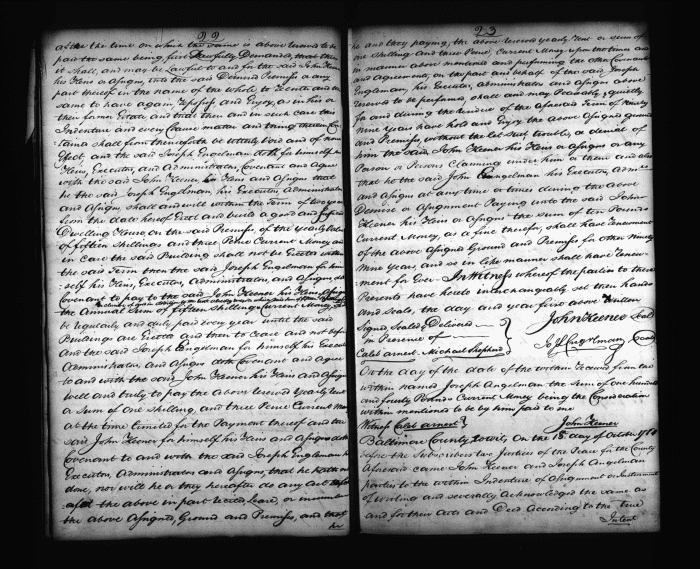 22
at the time on which the same is above reserved to be
paid the same being first Lawfully Demanded, that then
it shall, and may be Lawful to and for the said John Keener
his Heirs or Assigns into the said Demised Premises or any
part thereof in the name of the whole to Reenter and the
same to have again Repossess and Enjoy, as in his or
their former Estate, and that then and in such case this
Indenture and every Clause matter and thing therein Con-
tained shall from thenceforth be utterly Void and of none
Effect, and the said Joseph Engelman doth for himself his
Heirs, Executors, and Administrators Covenant and agree
with the said John Keener his Heirs and Assigns that
he the said Joseph Engelman, his Executors, Administrators
and Assigns, shall and will within the Term of two years
from the date hereof Erect and build a good and
Dwelling House on the said Premises, of the yearly Value
of fifteen Shillings and three Pence Current Money and
in Case the said Building shall not be Erected within
the said Term then the said Joseph Engelman for him-
self his Heirs, Executors, Administrators, and Assigns, doth
Covenant to pay to the said John Keener his Heirs Assigns
the Annual Sum of fifteen Shillings Current Money,
to be regularly and duly paid every year until the said
Buildings are Erected and then to Cease and not before
And the said Joseph Engelman for himself his Executors
Administrators, and Assigns doth Covenant and agree
to and with the said John Keener his Heirs and Assigns
well and truly to pay the above reserved Yearly Rent
or Sum of one Shilling, and three Pence Current Money
at the time Limited for the Payment thereof and the
said John Keener for himself his Heirs and Assigns doth
Covenant to and with the said Joseph Engelman his
Executors, Administrators and Assigns, that he hath not
done, nor will he or they hereafter do any Act
the above in part recited, Lease, or incumber
the above Assigned, Ground and Premises, and that
he
23
he and they paying, the above reserved yearly Rent or sum of
one Shilling and three Pence, Current Money upon the times and
in manner above mentioned and performing the other Covenants
and agreements, on the part and behalf of the said Joseph
Engelman, his Executors, Administrators and Assigns above
reserved to be performed, shall and may Peaceably & quietly
for and during the residue of the aforesaid Term of Ninety
Nine years have hold and Enjoy the above Assigned ground
and Premises, without the Let Suit, trouble, or denial of
him the said John Keener his Heirs or Assigns or any
Person or Persons Claiming under him or them and also
that he the said John Engelman his Executors, Admrs
and Assigns at any time or times during the above
Demise or Assignment Paying unto the said John
Keener his Heirs or Assigns the Sum of ten Pounds
Current Money, as a fine therefor, shall have renewment
of the above Assigned Ground and Premises for other Ninety
Nine Years, and so in like manner shall have Renew-
ment for Ever. In Witness whereof the parties to these
Presents have hereto interchangeably set their hands
and Seals, the day and year first above Written
Signed Sealed Delivered John Keener Seal
in Presence of
Caleb arnest. Michael Shepherd Seal
On the day of the date of the within Received from the
within named Joseph Angelman the sum of one hundred
and forty Pounds Current Money being the Consideration
within mentioned to be by him paid to me
Witness Caleb arnest John Keener
Baltimore County, towit, On the 15 day of October
before the Subscribers two Justices of the Peace for the County
Aforesaid came John Keener and Joseph Angelman
parties to the within Indenture of Assignment or Instrument
of Writing and severally Acknowledged the same as
and for their Acts and Deed According to the True
Intent